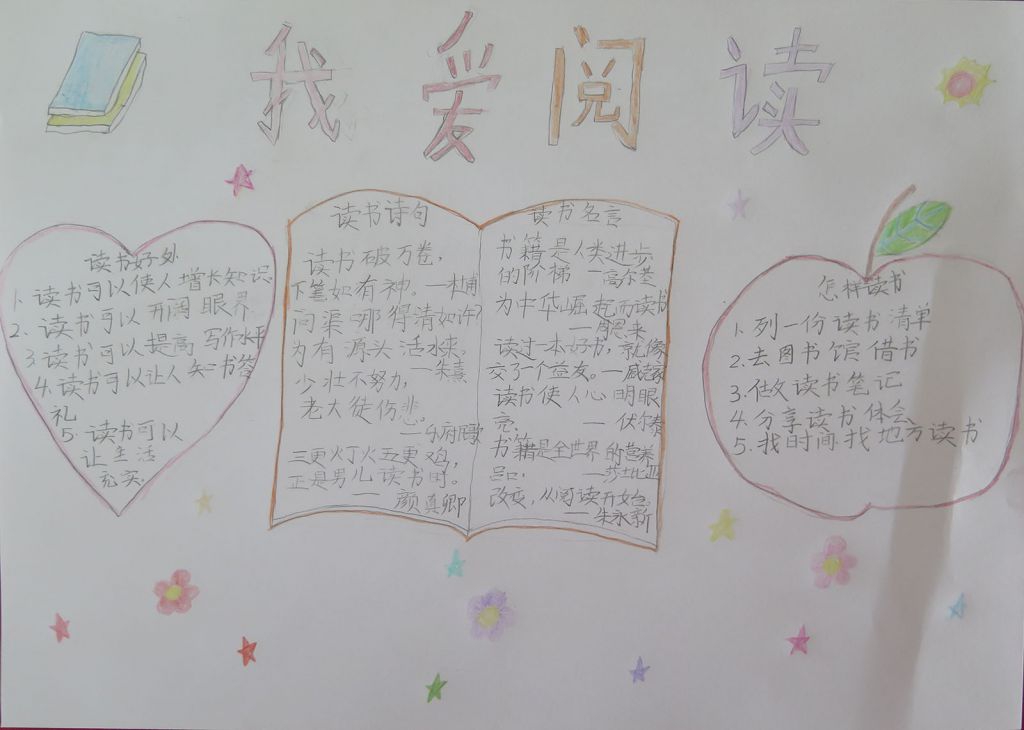 我爱阅读
读书好处
1. 读书可以使人增长知识
2. 读书可以开阔眼界
3 读书可以提高写作水平
4. 读书可以让人知书答
礼
5. 读书可以
让生活
充实.
读书诗句
读书破万卷,
下笔如有神。—杜甫
问渠哪得清如许?
为有源头活水来,
—朱熹
少壮不努力,
老大徒伤悲。
—乐府歌
三更灯火五更鸡,
正是男儿读书时。
— 颜真卿
读书名言
书籍是人类进步
的阶梯—高尔基
为中华崛起而读书
—周恩来
读过一本好书,就像
交了一个益友。—臧克家
读书使人心明眼
亮。—伏尔泰
书籍是全世界的营养
品。—莎士比亚
改变,从阅读开始。
—朱永新
怎样读书
1. 列一份读书清单
2. 去图书馆借书
3. 做读书笔记
4. 分享读书体会
5. 找时间找地方读书